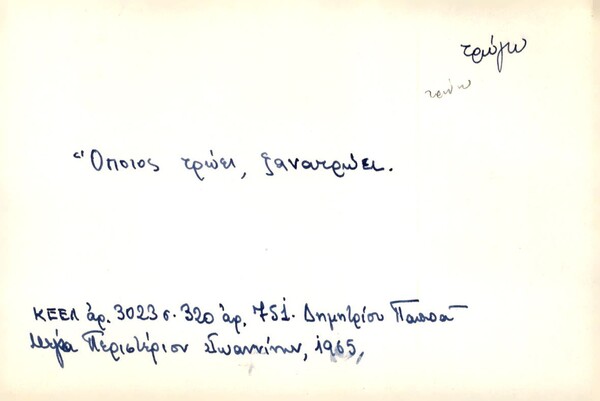 τρώγω
τρώω
Ὅποιος τρώει, ξανατρώει.
ΚΕΕΛ ἀρ. 3023 σ. 320 ἀρ. 751. Δημητρίου Παππᾶ
Μεγάλο Περιστέριον Ἰωαννίνων, 1965,